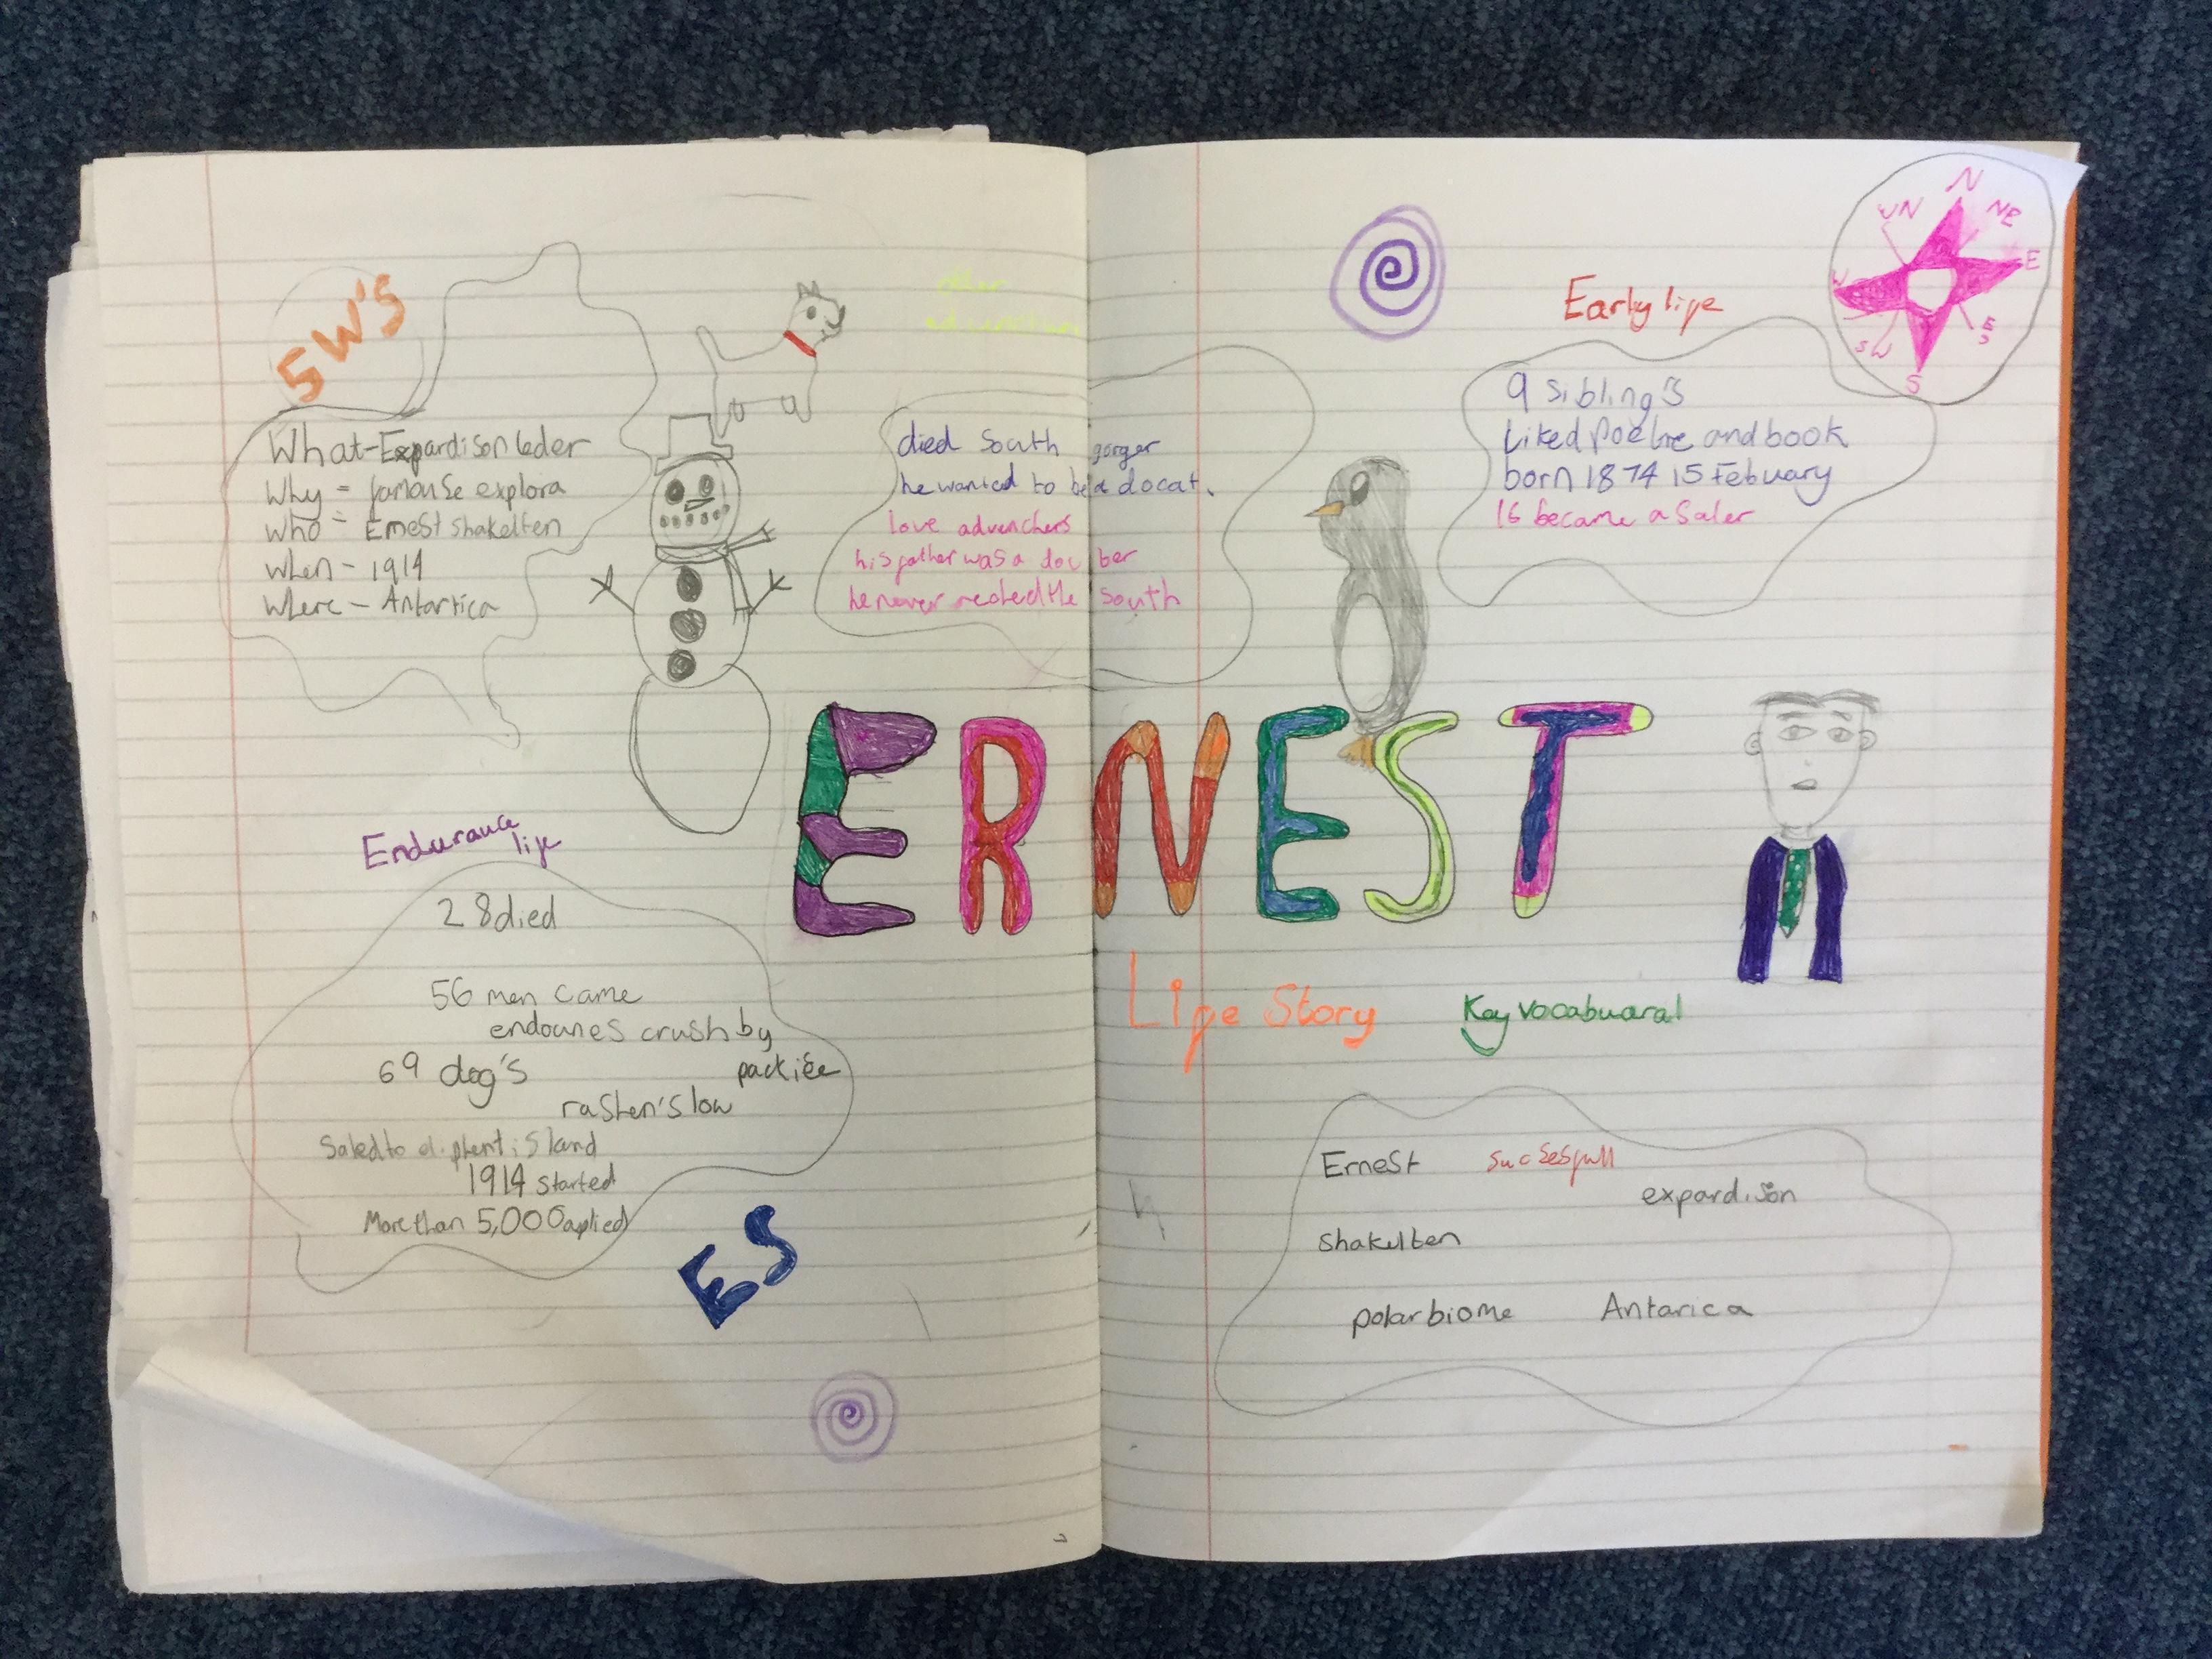 5W'S
What-Expardison leder
Why = famouse explora
who = Ernest shakelten
when - 1914
where - Antartica
other
died South gorger
he wanted to be a docat.
love advenchers
his father was a docber
he never reched the South
Early life
9 sibling's
Liked Poetre and book
born 1874 15 Febuary
16 became a Saler
N
NE
E
ES
S
SW
W
WN
ERNEST
Life Story
Key vocabuaral
Endurance
life
28 died
56 men came
endounes crush by
packice
69 dog's
rashen's low
Saled to eliphent island
1914 started
More than 5,000 aplied
ES
Ernest
sucsesfull
expardison
Shakelten
polar biome
Antarica